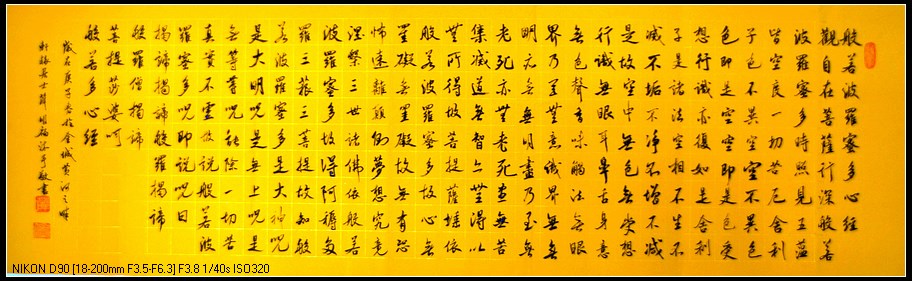 般若波羅蜜多心經
觀自在菩薩行深般若
波羅蜜多時照見五蘊
皆空度一切苦厄舍利
子色不異空空不異色
色即是空空即是色受
想行識亦復如是舍利
子是諸法空相不生不
滅不垢不淨不增不減
是故空中無色無受想
行識無眼耳鼻舌身意
無色聲香味觸法無眼
界乃至無意識界無無
明亦無無明盡乃至無
老死亦無老死盡無苦
集滅道亦無智亦無得以
無所得故菩提薩埵依
般若波羅蜜多故心無
罣礙無罣礙故無有恐
怖遠離顛倒夢想究竟
涅槃三世諸佛依般若
波羅蜜多故得阿耨多
羅三藐三菩提故知般
若羅蜜多是大神呪
是大明呪是無上呪是
無等等呪能除一切苦
真實不虛故說般若波
羅蜜多呪即說呪曰
揭諦揭諦般羅揭諦
般羅僧揭諦
菩提莎婆訶
般若多心經
歲在庚子於金城黃河之畔
軒轅居士書
NIKON D90 [18-200mm F3.5-F6.3] F3.8 1/40s ISO320